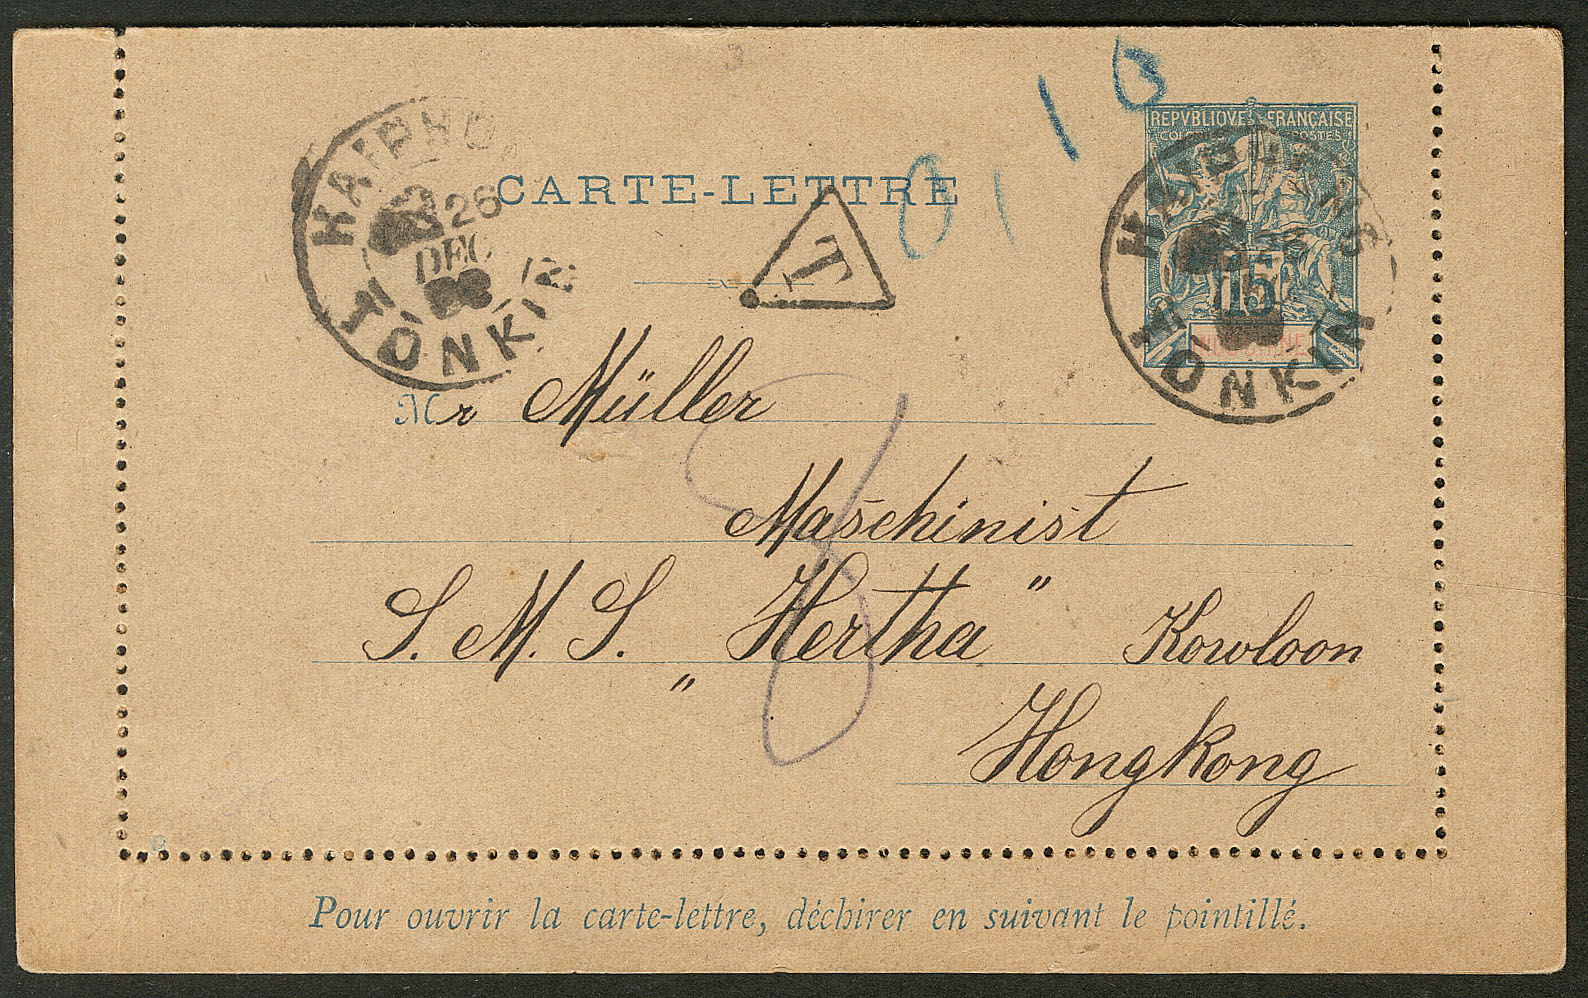 0,10
REPVBLIQVE FRANÇAISE
COLONIES POSTES
15
INDO-CHINE
HAIPHONG
26
DEC
TONKIN
HAIPHONG
TONKIN
CARTE-LETTRE
T
Mr Müller
Maschinist
S. M. S. „Hertha" Kowloon
Hongkong
Pour ouvrir la carte-lettre, déchirer en suivant le pointillé.